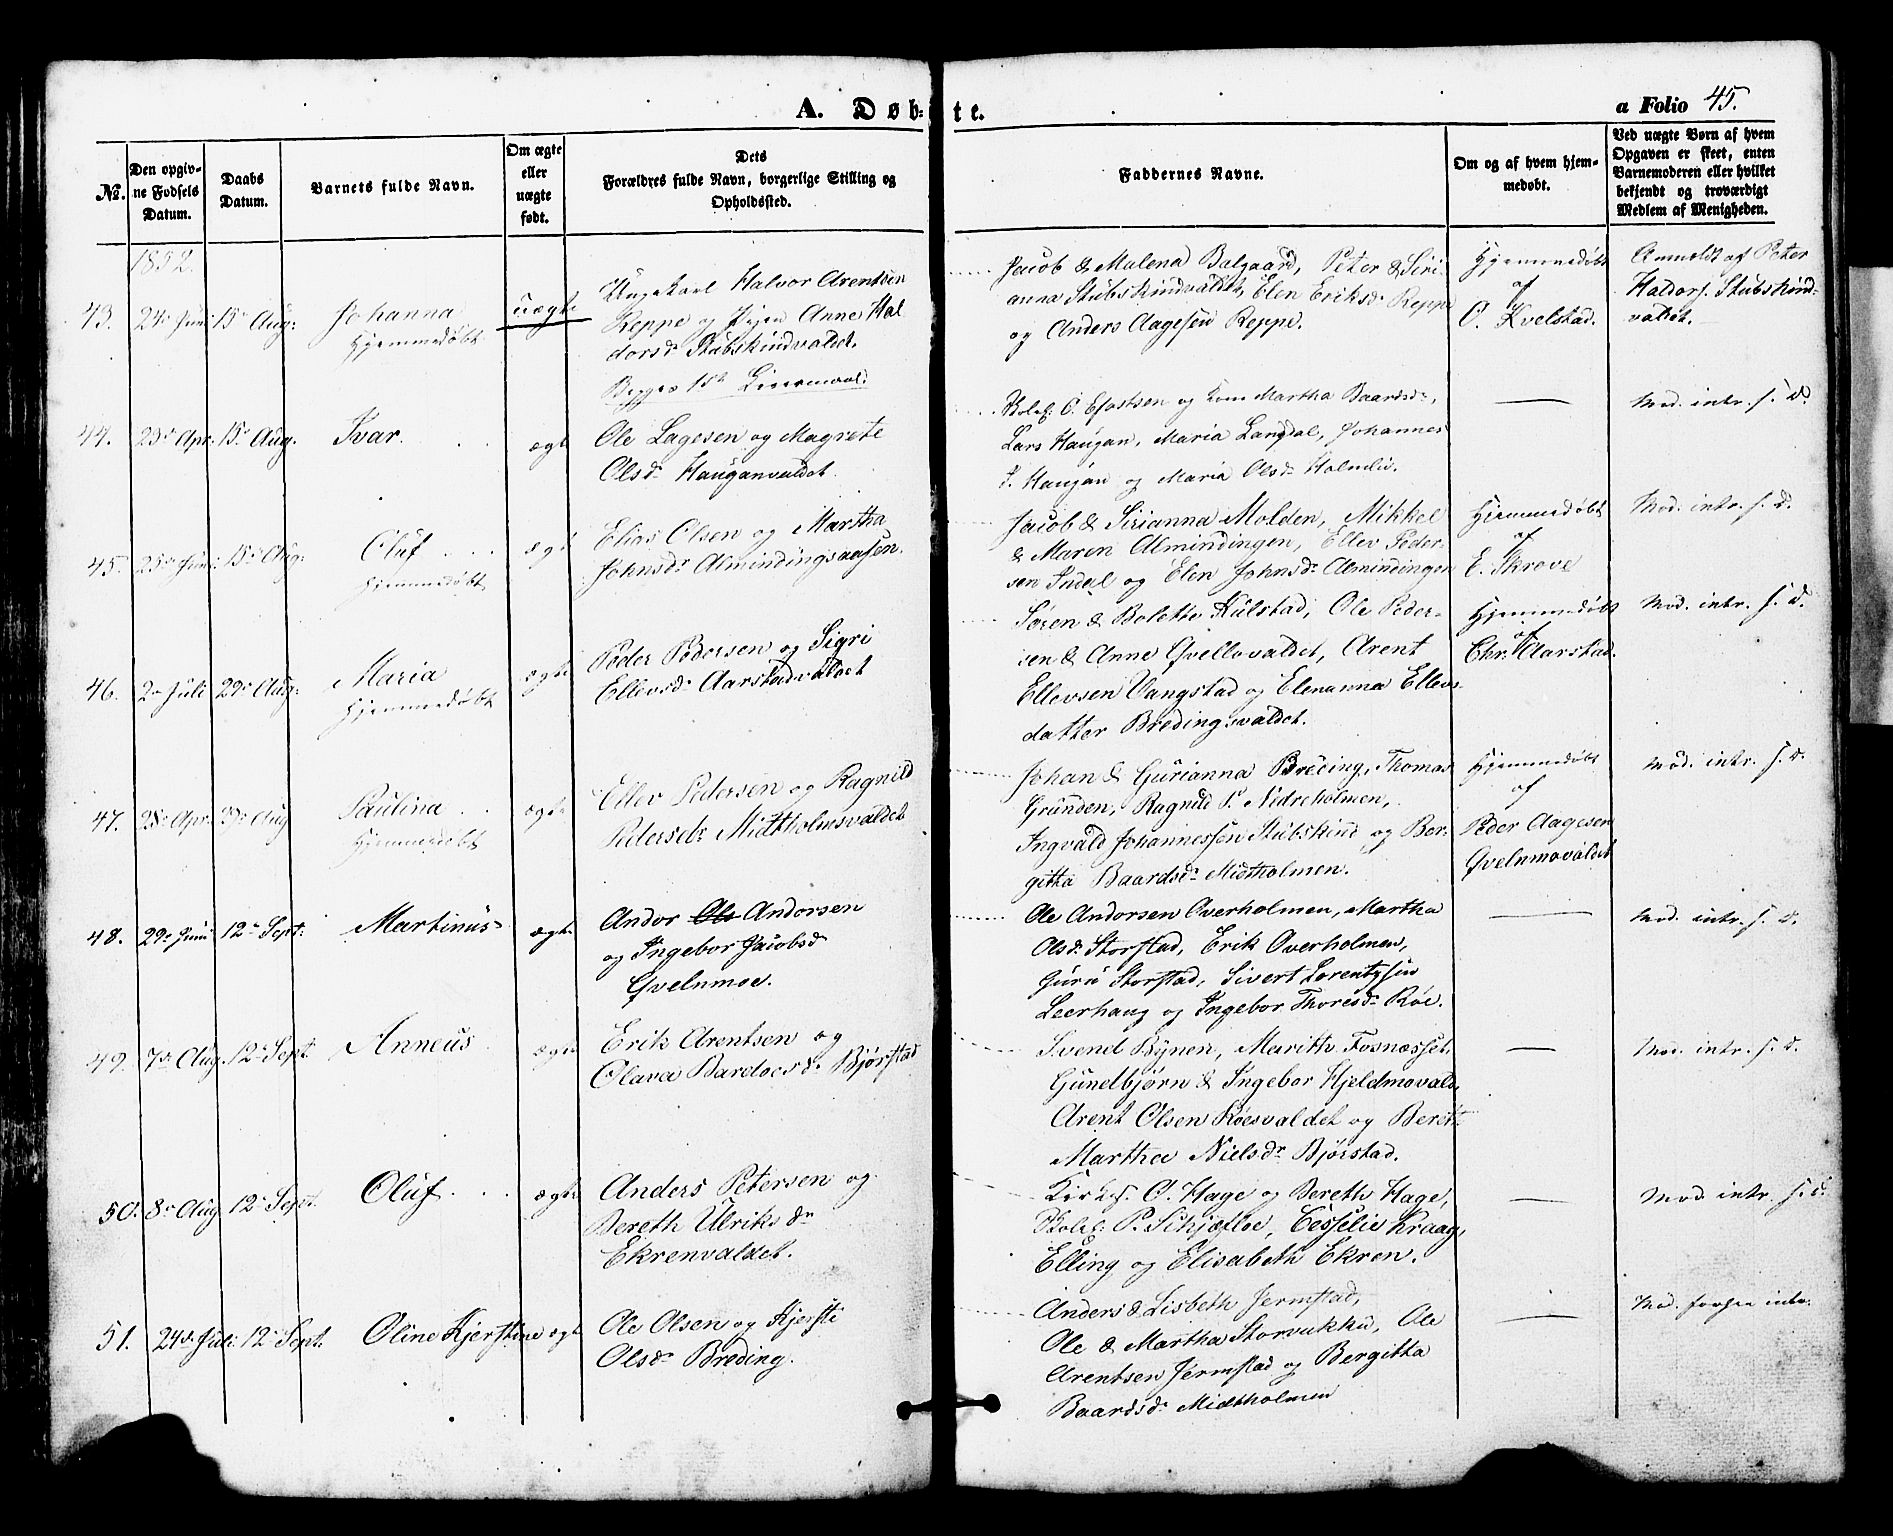 A. Døb-te.
a Folio 45.
No.
Den opgiv-
ne Fødsels
Datum.
Daabs
Datum.
Barnets fulde Navn.
Om ægte
eller
uægte
født.
Dets
Forældres fulde Navn, borgerlige Stilling og
Opholdssted.
Faddernes Navne.
Om og af hvem hjem-
medøbt.
Ved uægte Børn af hvem
Opgaven er skeet, enten
Barnemoderen eller hvilket
bekjendt og troværdigt
Medlem af Menigheden.
1852.
43. 24de Juni 15de Aug: Johanna
Hjemmedøbt
uægte
Ungekarl Halvor Arentsen
Reppe og Pigen Anne Hal
dorsdr Stubskindvaldet.
Begges 1ste Leiermaal.
Jacob & Malena Balgaard, Peter & Siri-
anna Stubskindvaldet, Elen Eriksdr Reppe
og Anders Aagesen Reppe.
Hjemmedøbt
af
O. Kvelstad.
Anmeldt af Peter
Haldors. Stubskind-
valdet.
44. 23de Apr. 15de Aug. Ivar.
ægte
Ole Lagesen og Magrete
Olsdr Hauganvaldet
O. Efastsen og Kone Martha Baardsdr,
Lars Haugan, Maria Langdal, Johannes
J. Haugan og Maria Olsdr Holmliv.
—
Mod. intr. s. D.
45. 25de Juni 15de Aug: Oluf
Hjemmedøbt
ægt
Elias Olsen og Martha
Johnsdr Almindingsaasen.
Jacob & Sirianna Molden, Mikkel
& Maren Almindingen, Ellev Peder-
sen Indal og Elen Johnsdr Almindingen
Hjemmedøbt
af
E. Skrove
Mod. intr. s. D.
46. 2de Juli 29de Aug: Maria
Hjemmedøbt
ægte
Peder Pedersen og Sigri
Ellevsdr Aarstadvaldet
Søren & Bolette Kulstad, Ole Peder-
sen & Anne Qvellovaldet, Arent
Ellevsen Vangstad og Elenanna Ellevs-
datter Bredingsvaldet.
Hjemmedøbt
af
Chr. Aarstad.
Mod. intr. s. D.
47. 28de Apr. 29de Aug Paulina
Hjemmedøbt
ægte
Ellev Pedersen og Ragnild
Pedersdr Midtholmsvaldet
Johan & Gurianna Breding, Thomas
Grunden, Ragnild P. Nedreholmen,
Ingvald Johannessen Stubskind og Ber-
gitta Baardsdr Midtholmen.
Hjemmedøbt
af
Peder Aagesen
Qvelnmovaldet
Mod. intr. s. D.
48. 29de Juni 12te Sept: Martinus
ægte
Andor Ols Andorsen
og Ingebor Jacobsd
Qvelnmoe.
Ole Andorsen Overholmen, Martha
Olsdr Storstad, Erik Overholmen,
Guru Storstad, Sivert Lorentzsen
Leerhaug og Ingebor Thoresdr Röe.
—
Mod. intr. s. D.
49. 7de Aug. 12te Sept. Anneus
ægte
Erik Arentsen og
Olava Bardoesdr Bjørstad
Svend Bynen, Marith Fosnæsset,
Gundbjørn & Ingebor Hjeldmovald,
Arent Olsen Röesvaldet og Beret
Martha Nielsdr Bjørstad.
—
Mod. intr. s. D.
50. 8de Aug 12te Sept. Oluf
ægte
Anders Petersen og
Bereth Ulriksdr
Ekrenvaldet.
O. Hage og Bereth Hage,
P. Schjefloe, Cesselie Kraag,
Elling og Elisabeth Ekren.
—
Mod. intr. s. D.
51. 24de Juli 12te Sept. Oline Kjerstine ægte
Ole Olsen og Kjersti
Olsdr Breding.
Anders & Lisbeth Jermstad,
Ole & Martha Storvukku, Ole
Arentsen Jermstad og Bergitta
Baardsdr Midtholmen
—
Mod. forhen intr.